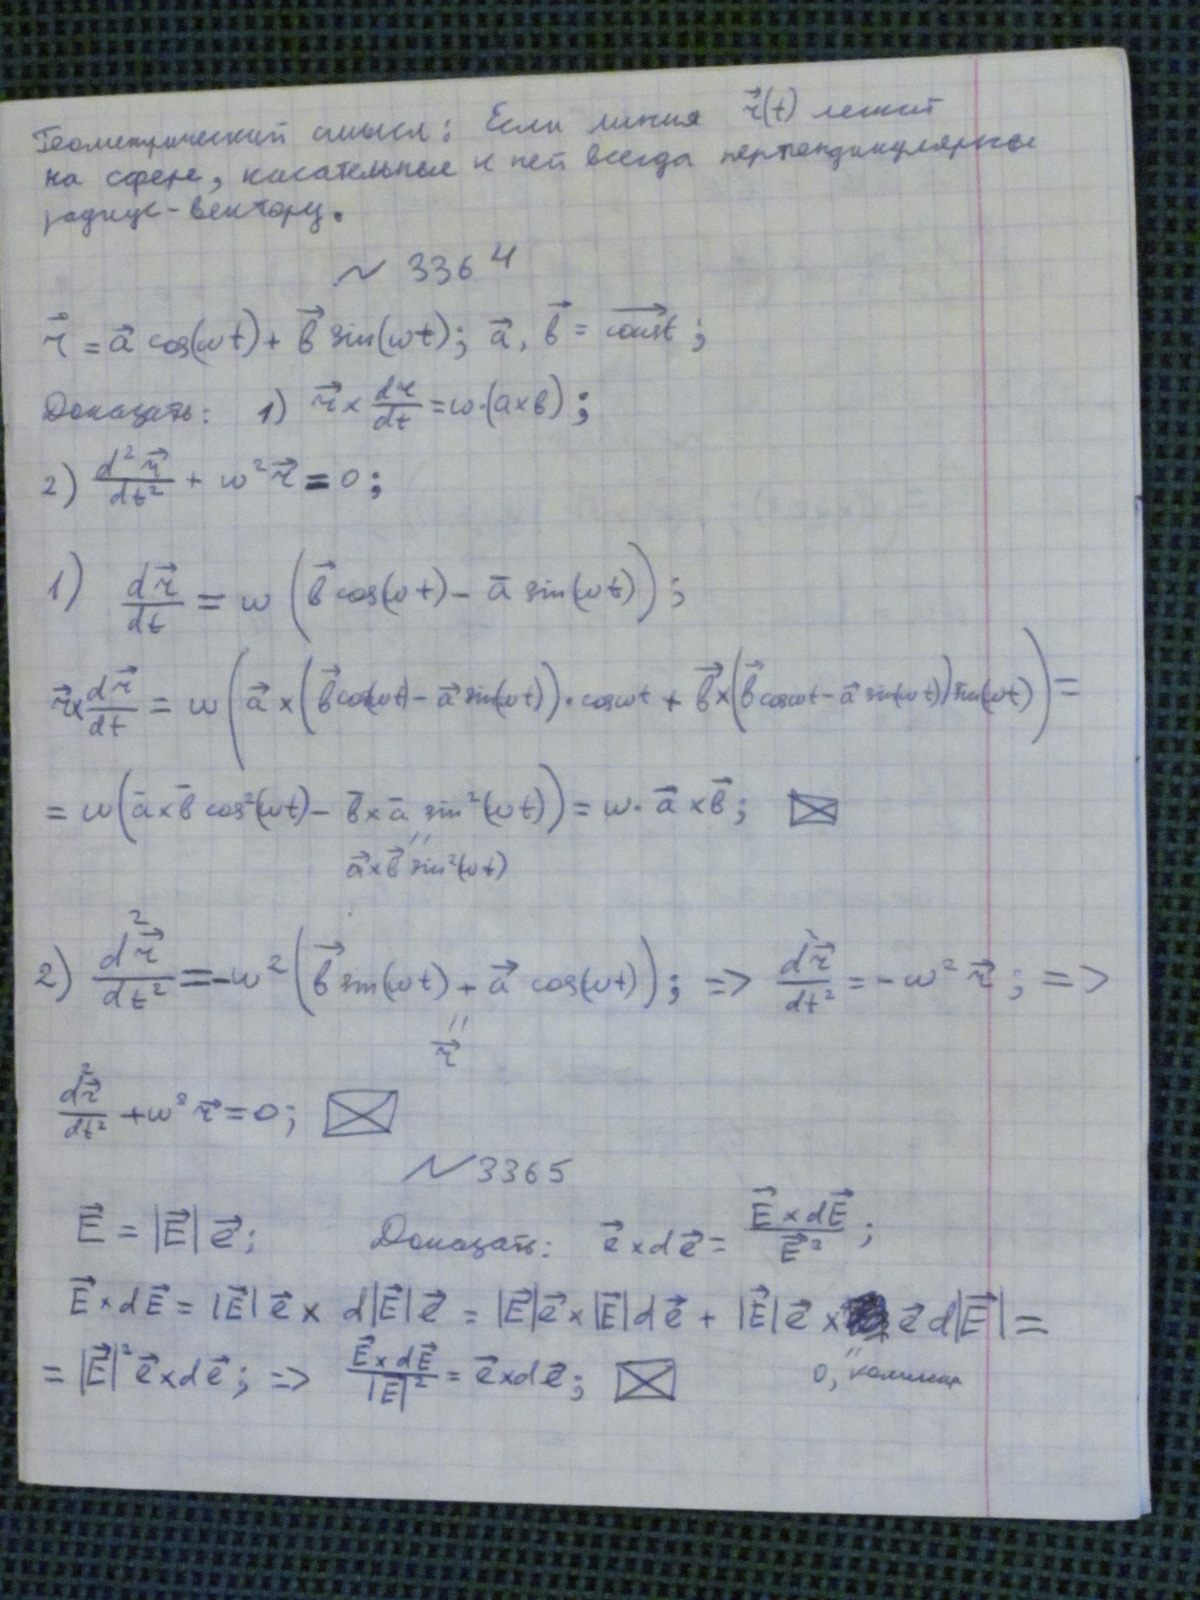 Геометрический смысл: Если линия r⃗(t) лежит
на сфере, касательные к ней всегда перпендикулярны
радиус-вектору.
~ 3364
r⃗ = a⃗ cos(ωt) + b⃗ sin(ωt); a⃗, b⃗ = const⃗;
Доказать: 1) r⃗ × dr/dt = ω·(a×b);
2) d²r⃗/dt² + ω²r⃗ = 0;
1) dr⃗/dt = ω (b⃗ cos(ωt) − a̅ sin(ωt));
r⃗ × dr⃗/dt = ω (a⃗ × (b⃗ cos(ωt) − a⃗ sin(ωt))·cosωt + b⃗ × (b⃗ cosωt − a⃗ sin(ωt)) sin(ωt)) =
= ω (a̅ × b̅ cos²(ωt) − b̅ × a̅ sin²(ωt)) = ω· a⃗ × b⃗;
"
a⃗ × b⃗ sin²(ωt)
2) d²r⃗/dt² = −ω² (b⃗ sin(ωt) + a⃗ cos(ωt)); => d²r⃗/dt² = −ω² r⃗; =>
"
r⃗
d²r⃗/dt² + ω² r⃗ = 0;
~ 3365
E⃗ = |E⃗| e⃗; Доказать: e⃗ × de⃗ = E⃗ × dE⃗ / E⃗²;
E⃗ × dE⃗ = |E⃗| e⃗ × d|E⃗| e⃗ = |E⃗| e⃗ × |E⃗| de⃗ + |E⃗| e⃗ × e⃗ d|E⃗| =
= |E⃗|² e⃗ × de⃗; => E⃗ × dE⃗ / |E⃗|² = e⃗ × de⃗;
"
0, коллинеар